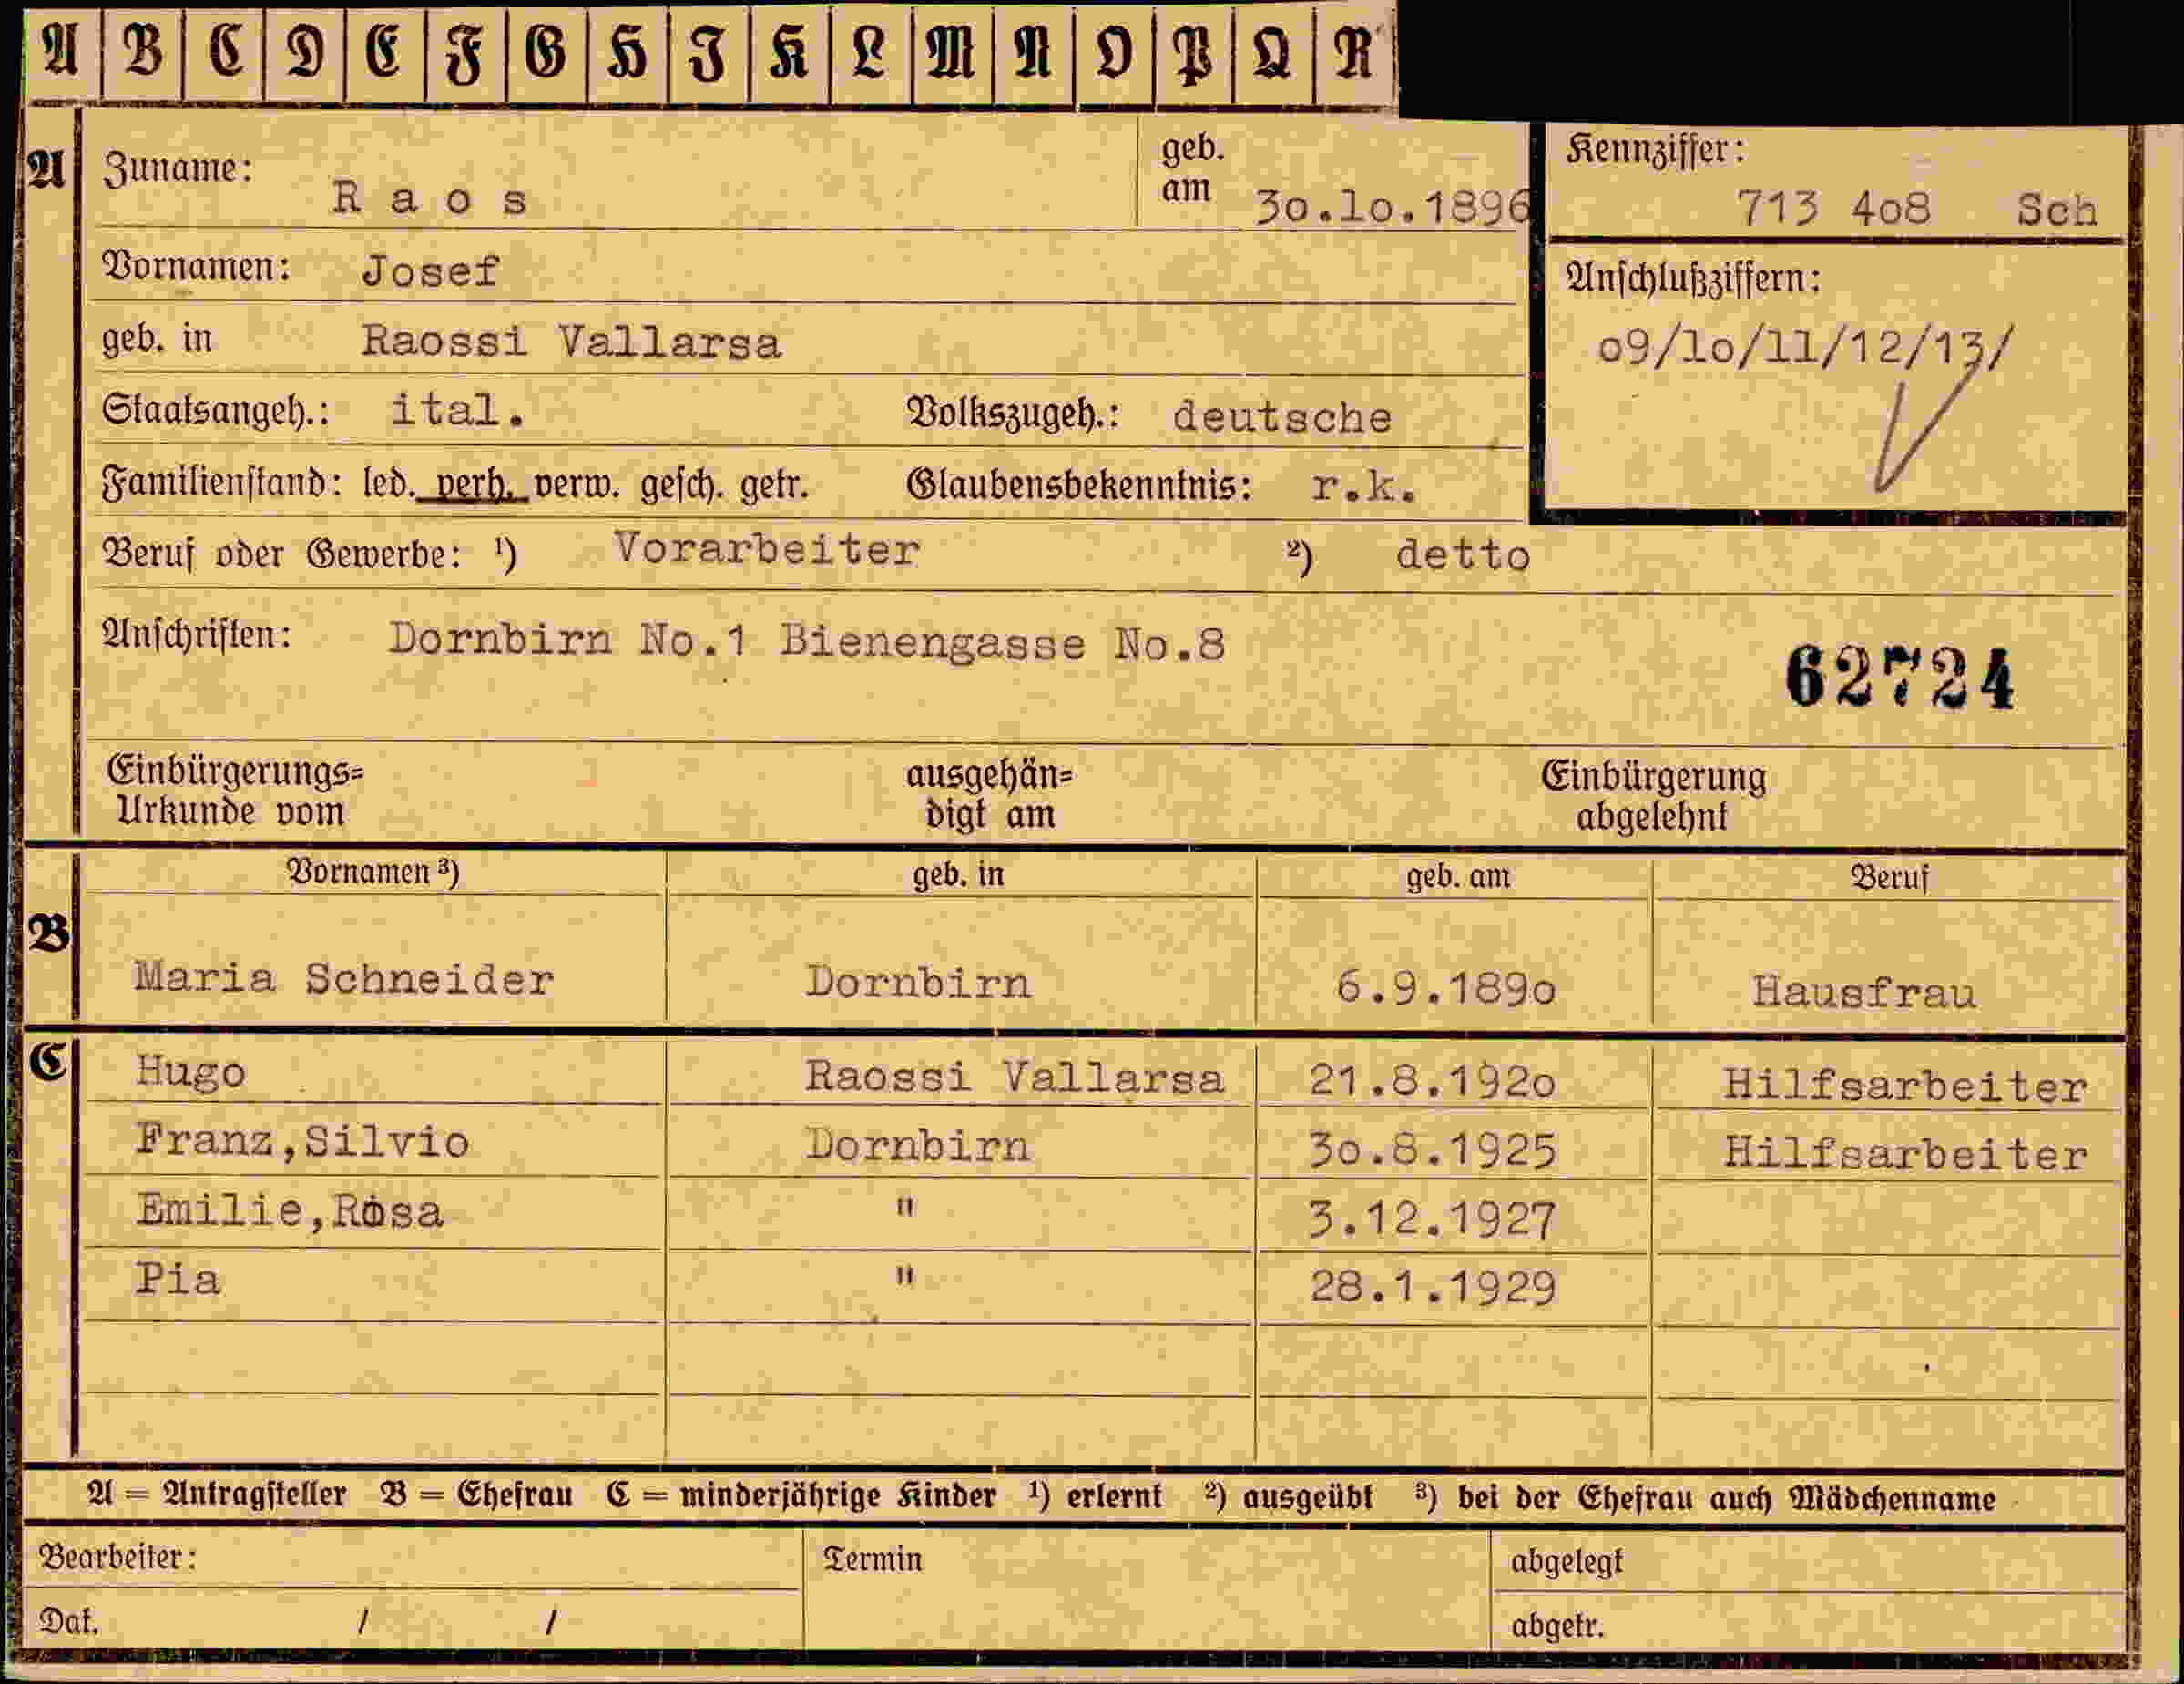 A B C D E F G H J K L M N O P Q R
A Zuname: Raos geb. am 30.lo.1896
Kennziffer: 713 4o8 Sch
Vornamen: Josef
Anschlußziffern:
o9/lo/ll/12/13/
geb. in Raossi Vallarsa
Staatsangeh.: ital. Volkszugeh.: deutsche
Familienstand: led. verh. verw. gesch. getr. Glaubensbekenntnis: r.k.
Beruf oder Gewerbe: ¹) Vorarbeiter ²) detto
Anschriften: Dornbirn No.1 Bienengasse No.8
62724
Einbürgerungs= ausgehän= Einbürgerung
Urkunde vom digt am abgelehnt
Vornamen ³) geb. in geb. am Beruf
B
Maria Schneider Dornbirn 6.9.189o Hausfrau
C Hugo Raossi Vallarsa 21.8.192o Hilfsarbeiter
Franz,Silvio Dornbirn 3o.8.1925 Hilfsarbeiter
Emilie,Rosa " 3.12.1927
Pia " 28.1.1929
A = Antragsteller B = Ehefrau C = minderjährige Kinder ¹) erlernt ²) ausgeübt ³) bei der Ehefrau auch Mädchenname
Bearbeiter: Termin abgelegt
Dat. / / abgetr.